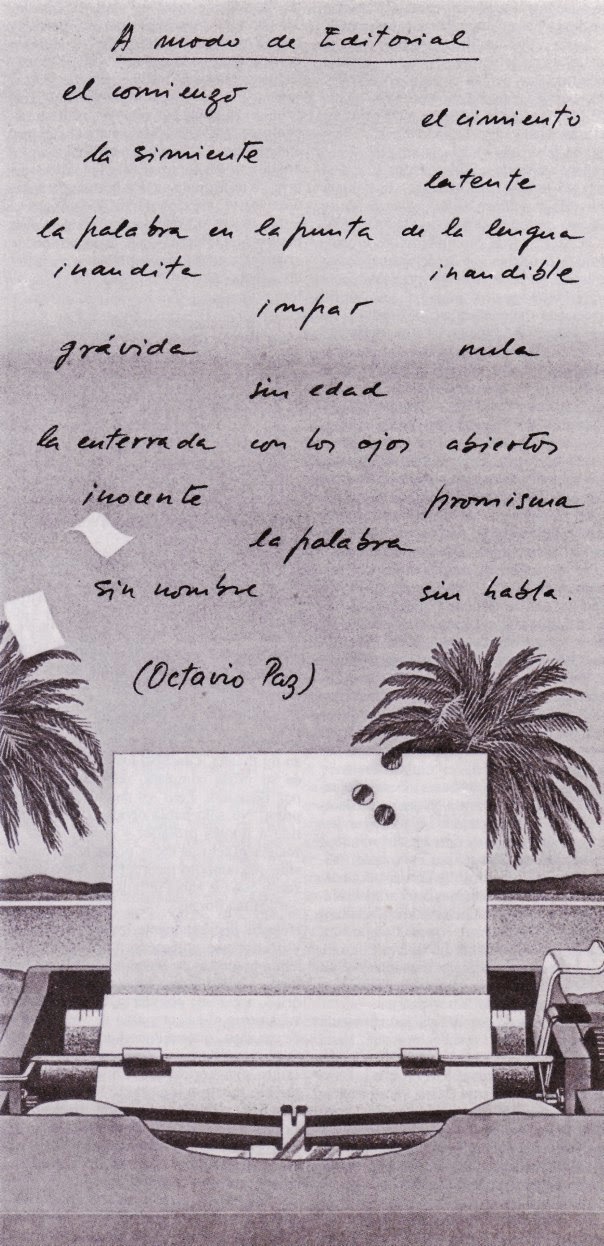 A modo de Editorial
el comienzo
el cimiento
la simiente
latente
la palabra en la punta de la lengua
inaudita inaudible
impar
grávida nula
sin edad
la enterrada con los ojos abiertos
inocente promisma
la palabra
sin nombre sin habla.
(Octavio Paz)